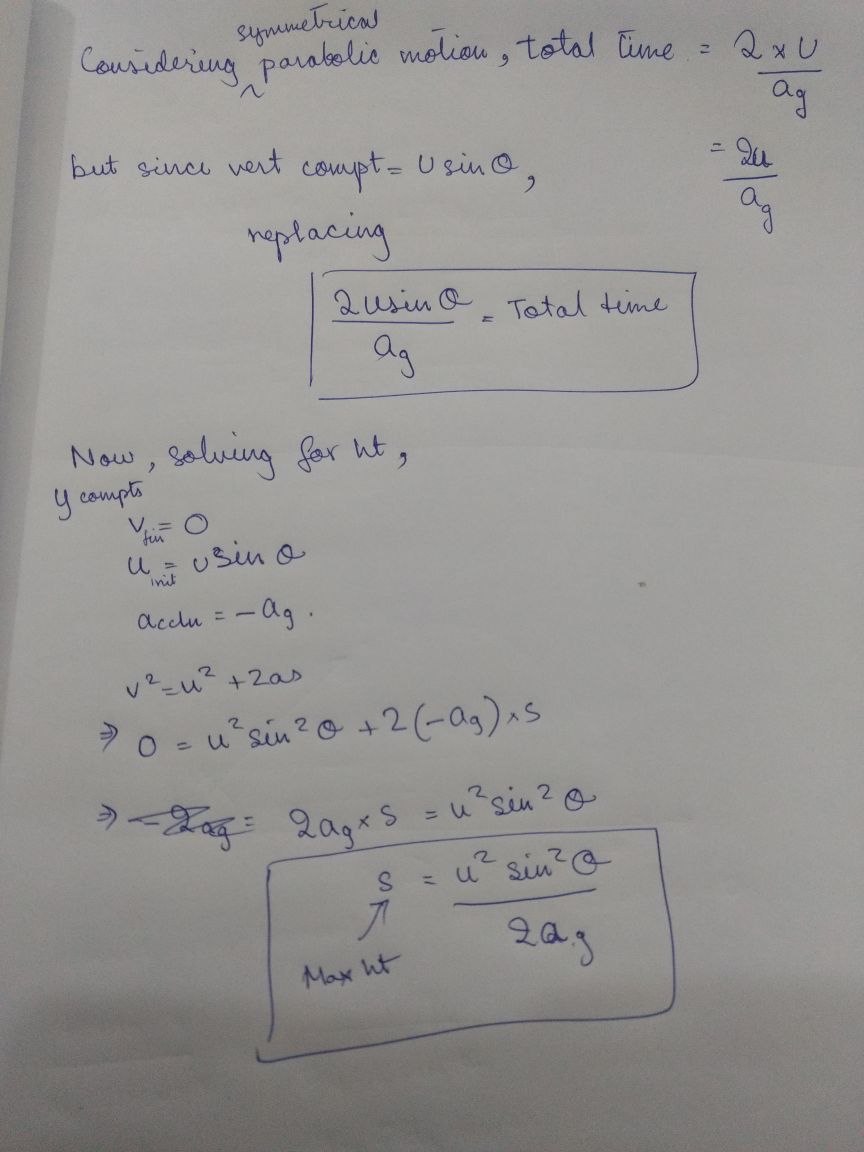 symmetrical
Considering ^ parabolic motion, total time = 2 × U / a_g
but since vert compt = U sin θ, = 2u / a_g
replacing
2 u sin θ / a_g = Total time
Now, solving for ht,
y compts
V_fin = 0
u_init = u sin θ
accln = - a_g.
v² = u² + 2as
⇒ 0 = u² sin² θ + 2(-a_g) × s
⇒ 2a_g × s = u² sin² θ
s = u² sin² θ / 2a_g
Max ht